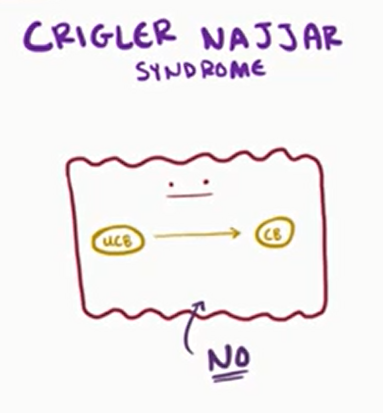 CRIGLER NAJJAR
SYNDROME
UCB CB
NO